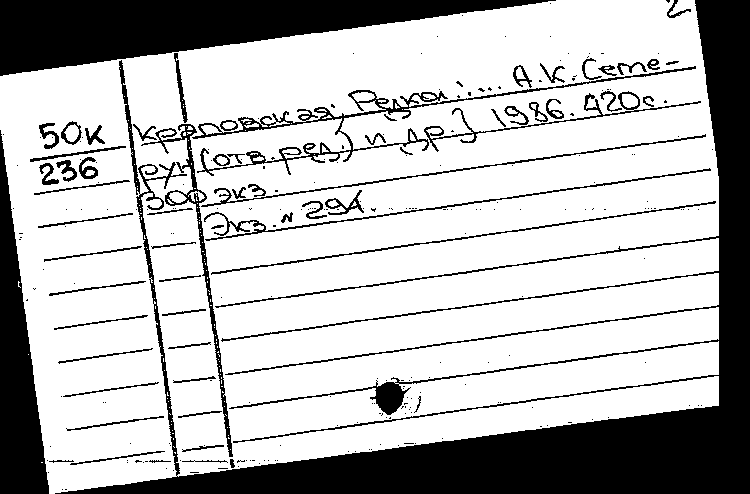 2
50к
236
краповская; Редкол.:... А.К.Семе-
рун (отв.ред.) и др.] 1986. 420с.
300 экз.
Экз. № 294.